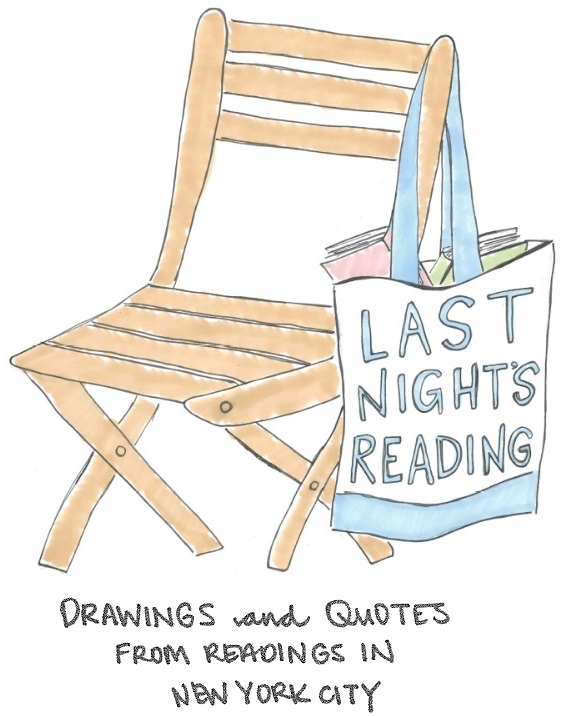 LAST
NIGHT'S
READING
DRAWINGS and QUOTES
FROM READINGS IN
NEW YORK CITY